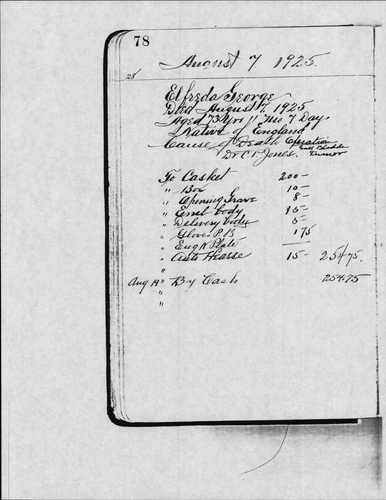 78
August 7 1925.
28
Elfreda George
Died August 7, 1925
Aged 73 Yrs 11 Mo 7 Days
Native of England
Cause of Death Operation
Gall Bladder
Dr C. T. Jones. Tumor
To Casket 200 -
" Box 10 -
" Opening Grave 8 -
" Emb body 15 -
" Delivery body 5 -
" Gloves P. B 1 75
" Eng N Plate
" Auto Hearse 15 - 254 75.
"
Aug 19 " By Cash 254.75
"
"